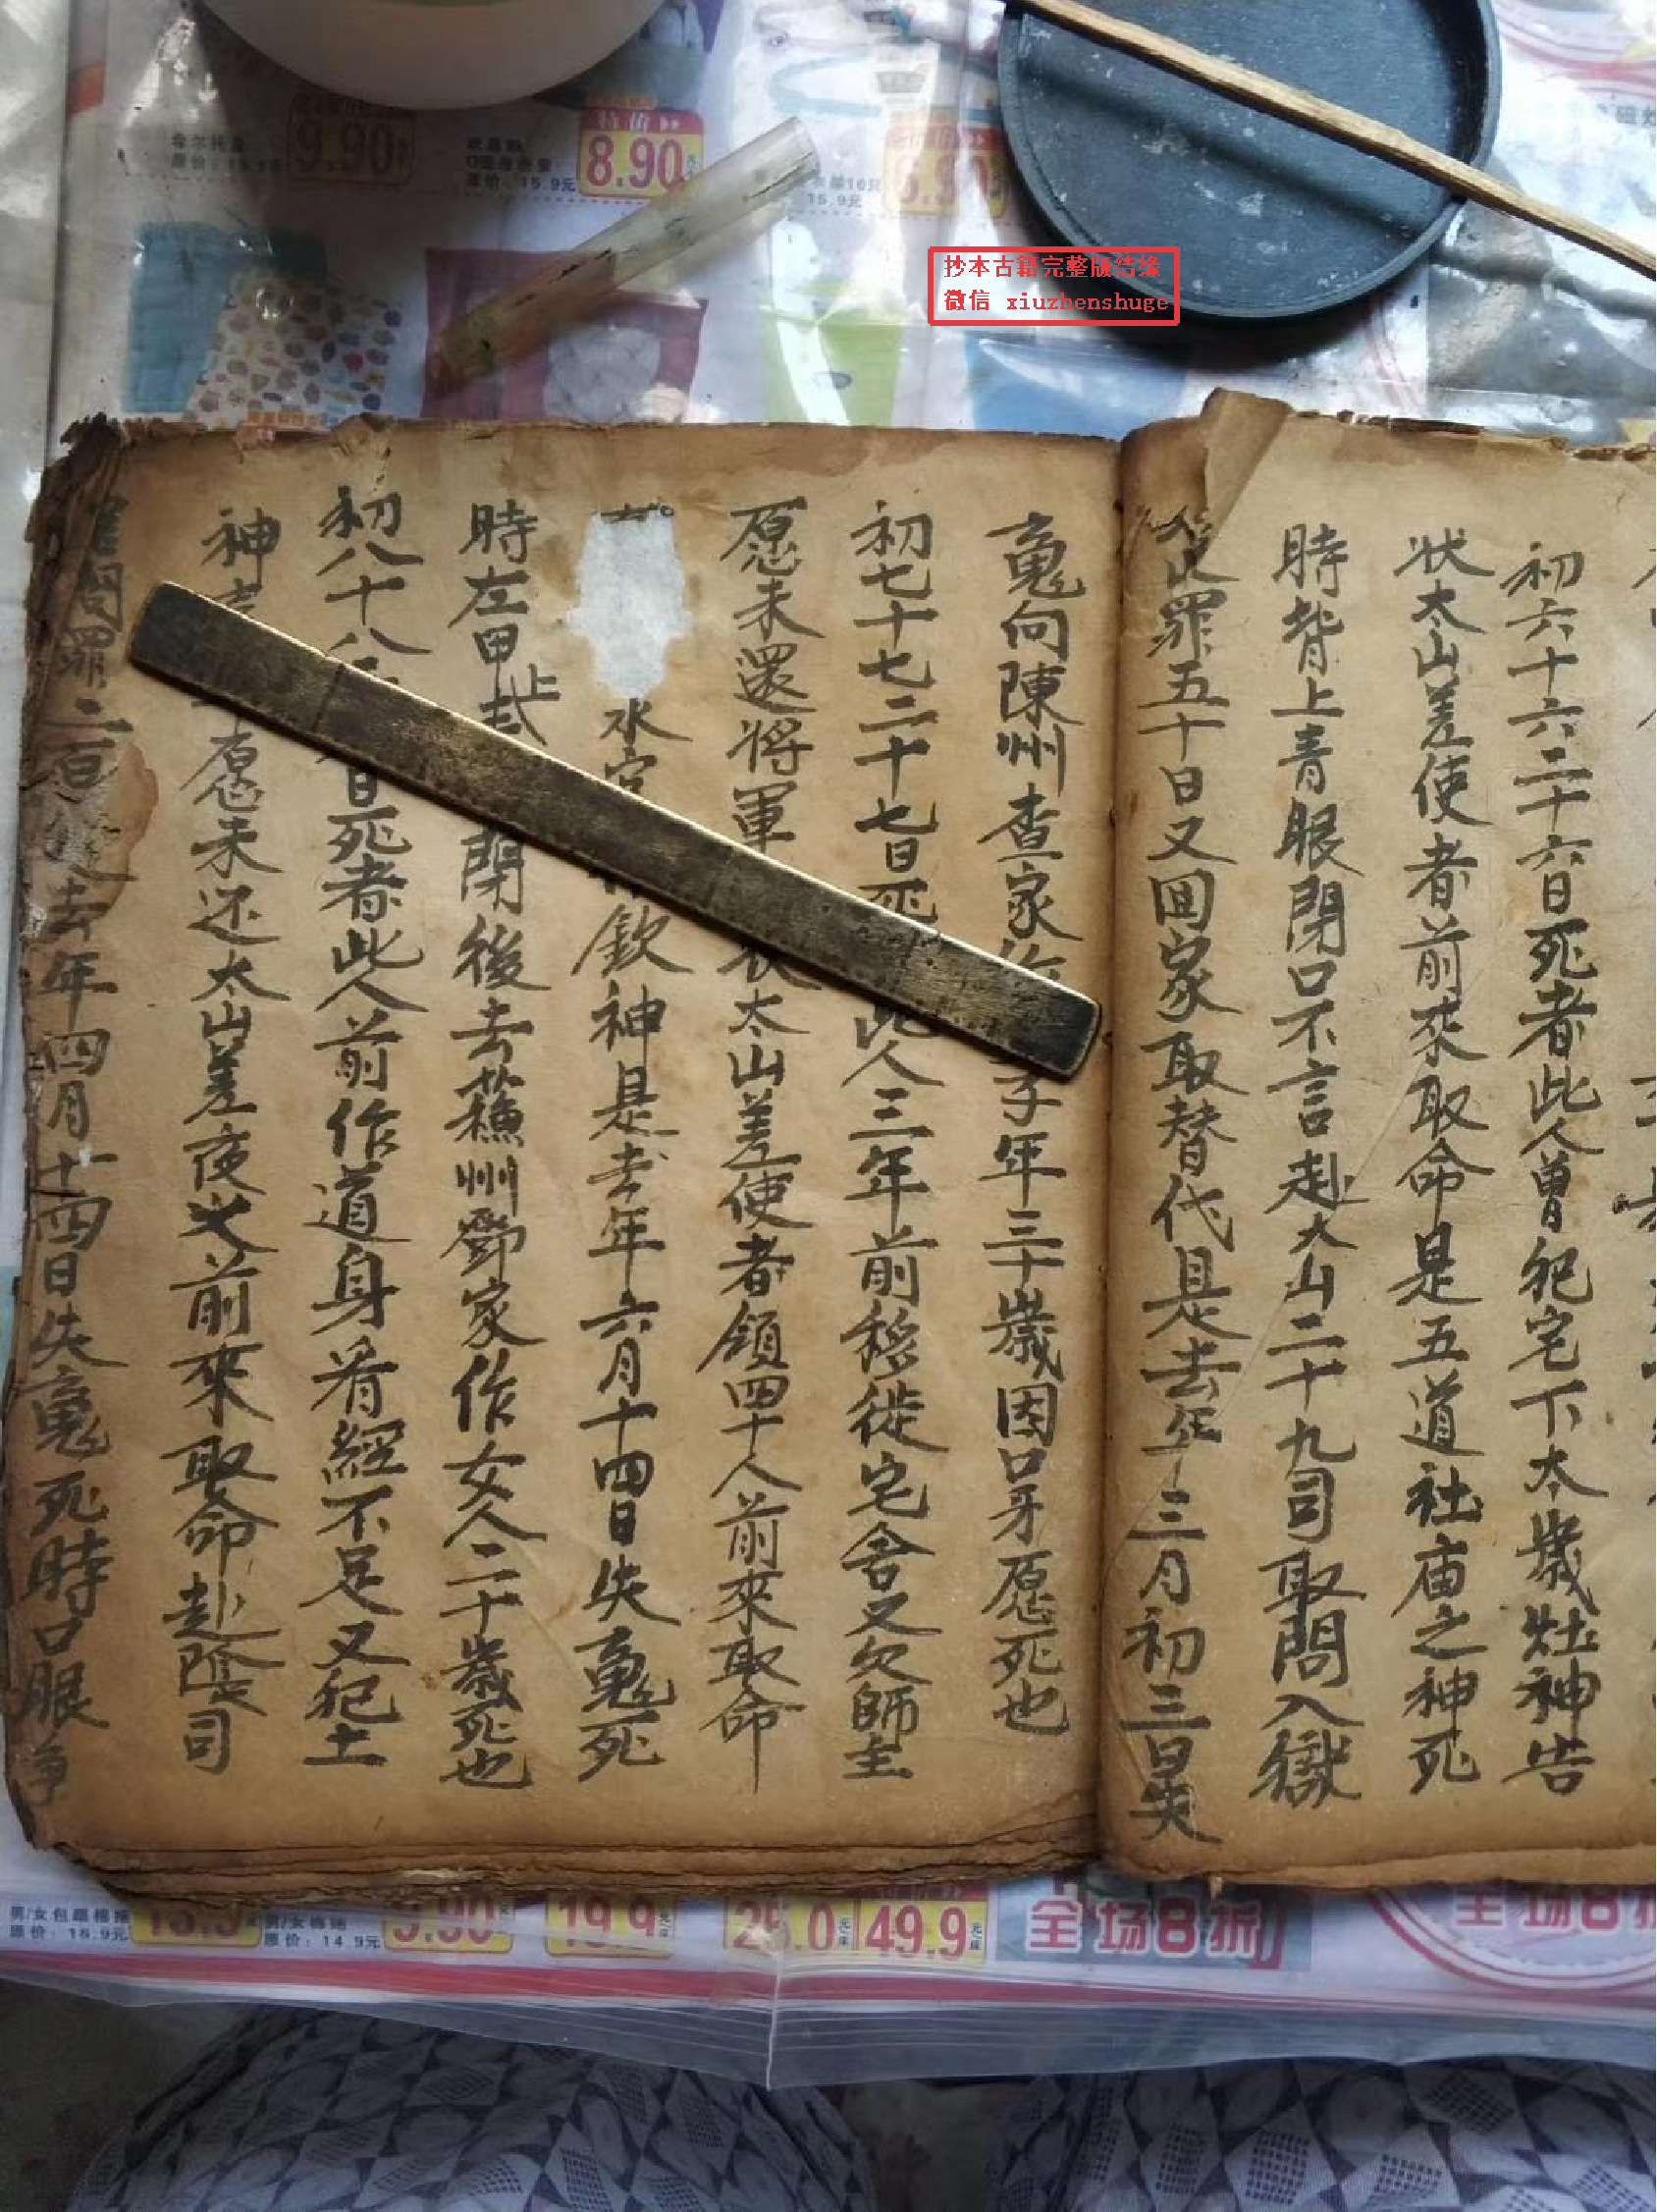 9.90
原价：15.9元
特价
8.90
原价：15.9元
6.90
15.9元
抄本古籍完整版结缘
微信 xiuzhenshuge
初六十六二十六日死者此人曽犯宅下太歲灶神告
状太山差使者前來取命是五道社庙之神死
時背上青眼閉口不言赴太山二十九司取問入獄
罪五十日又囬家取替代是去年三月初三日失
䰟向陳州查家作 子年三十歲因口牙愿死也
初七十七二十七日死 此人三年前移徙宅舍又欠師主
愿未還将軍 太山差使者領四十人前來取命
水官 欽神是去年六月十四日失䰟死
時左甲上 閉後去蘓州鄧家作女人二十歲死也
初八十八 日死者此人前作道身看經不足又犯土
神 愿未还太山差 前來取命赴隂司
問罪二百 去年四月十四日失䰟死時口眼净
男/女包跟棉拖
原价：18.9元
男/女棉拖
原价：14.9元
9.90
19.9
49.9
全场8折
全场8折